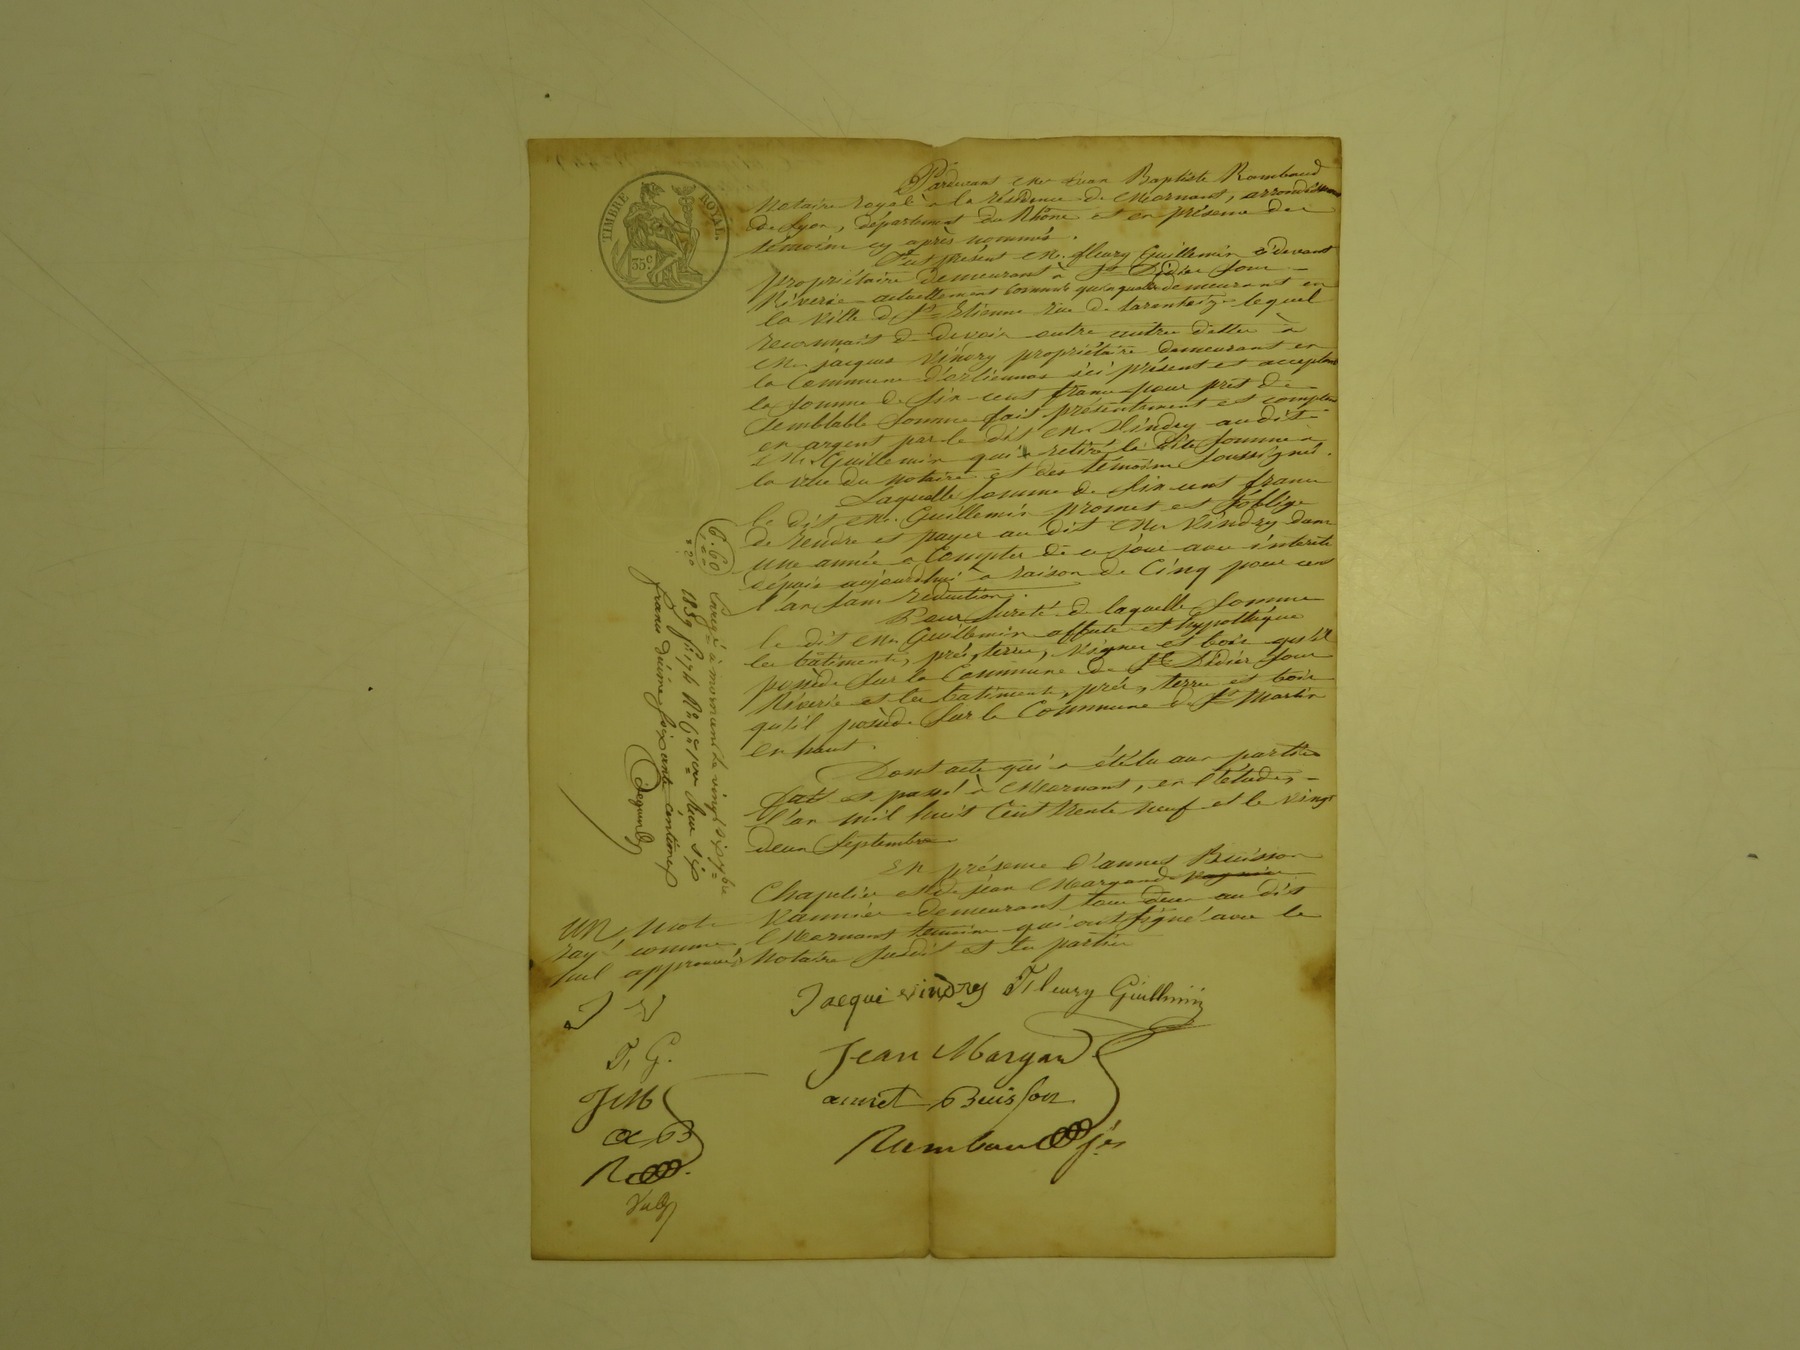 TIMBRE ROYAL
35 c
Pardevant Me Jean Baptiste Rambaud
Notaire royal à la résidence de Mornant, arrondissement
de Lyon, département du Rhône et en présence des
témoins cy après nommés.
Fut présent Mr. fleury Guillemin cidevant
propriétaire demeurant à St Didier sous
Riverie actuellement demeurant en
la ville de St Etienne rue de tarentaize lequel
reconnait de devoir outre autre dette à
Mr jacques Vindry propriétaire demeurant en
la Commune d'orliennas ici présent et acceptant
la somme de Six cent francs pour prêt de
Semblable Somme fait présentement et comptant
en argent par le dit Mr Vindry au dit
Mr Guillemin qui a retiré la dite Somme à
la vue du notaire et des témoins Soussignés.
Laquelle Somme de Six cent francs
le dit Mr. Guillemin promet et s'oblige
de rendre et payer au dit Mr Vindry dans
une année à Compter de ce jour avec intérêts
depuis aujourdhui à raison de Cinq pour cent
l'an Sans réduction.
Pour Sureté de laquelle Somme
le dit Mr Guillemin affecte et hypothèque
les bâtiments, prés, terres, vignes et bois qu'il
possède Sur la Commune de St Didier Sous
Riverie et les batiments, prés, terres et bois
qu'il possède Sur la Commune de St Martin
en haut.
Dont acte qui a été lu aux parties
fait et passé à Mornant, en l'étude,
l'an mil huit Cent trente neuf et le vingt
deux Septembre
En présence d'annet Buisson
Chapelier et de jean Margand
Vannier demeurant tous deux au dit
Mornant témoins qui ont signé avec le
Notaire susdit et les parties
Un mot
rayé comme
nul approuvé
6.60
Enregé à mornant le vingt six 7bre
1839 fo 174 Ro Reçu six
francs décime soixante centimes
Jacque vindry Fleury Guillemin
Jean Margand
annet Buisson
Rambaud
J V
F. G.
J M
a B
R